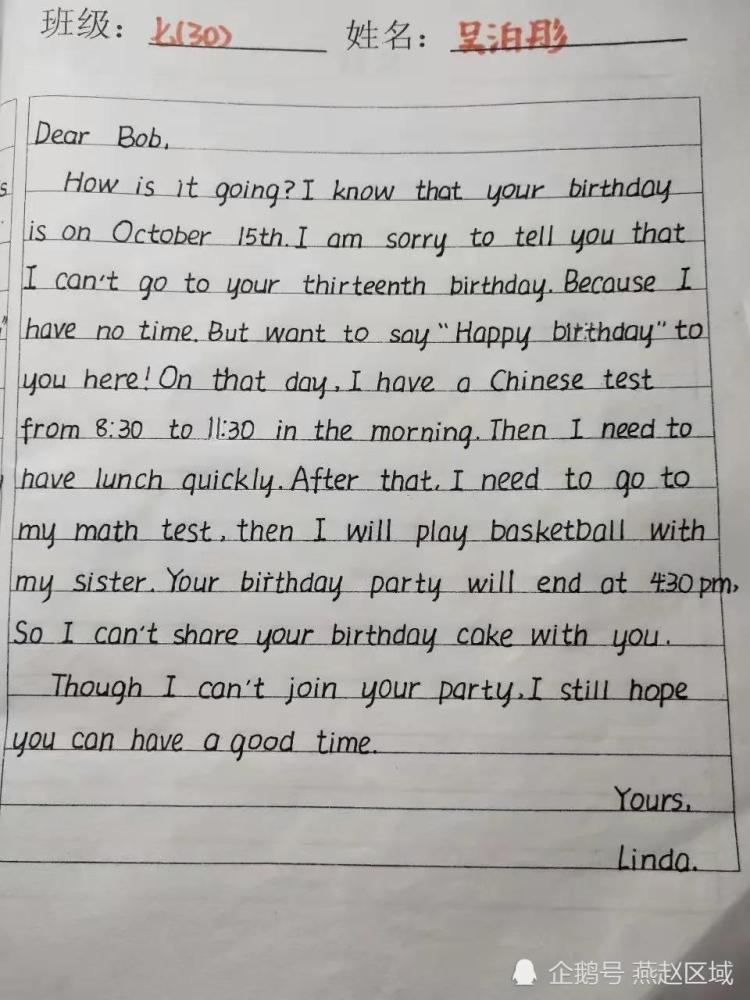 班级: 七(30) 姓名: 吴泊彤
Dear Bob,
How is it going? I know that your birthday
is on October 15th. I am sorry to tell you that
I can't go to your thirteenth birthday. Because I
have no time. But want to say "Happy birthday" to
you here! On that day, I have a Chinese test
from 8:30 to 11:30 in the morning. Then I need to
have lunch quickly. After that, I need to go to
my math test, then I will play basketball with
my sister. Your birthday party will end at 4:30 pm,
So I can't share your birthday cake with you.
Though I can't join your party, I still hope
you can have a good time.
Yours,
Linda.
企鹅号 燕赵区域